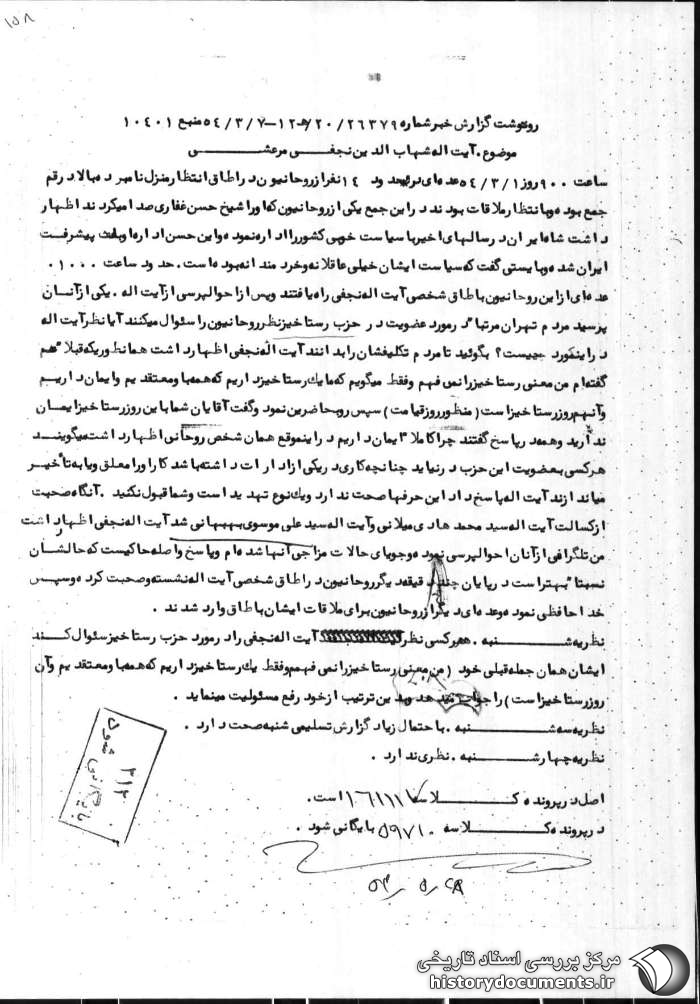 ۱۵۸
رونوشت گزارش خبر شماره ۲۶۳۷۹/ ۲۰/ه‍ ۱۲ـ۵۴/۳/۷ منبع ۱۰۴۰۱
موضوع. آیت اله شهاب الدین نجفی مرعشی
ساعت ۹۰۰ روز ۵۴/۳/۱ عده ای در حدود ۱۴ نفر از روحانیون در اطاق انتظار منزل نامبرده بالا در قم
جمع بوده و با انتظار ملاقات بودند در این جمع یکی از روحانیون که او را شیخ حسن غفاری صدا میکردند اظهار
داشت شاه ایران در سالهای اخیر با سیاست خوبی کشور را اداره نموده و این حسن اداره او باعث پیشرفت
ایران شده و بایستی گفت که سیاست ایشان خیلی عاقلانه و خردمندانه بوده است. حدود ساعت ۱۰۰۰
عده ای از این روحانیون با طاق شخصی آیت اله نجفی راه یافتند و پس از احوالپرسی از آیت اله. یکی از آنان
پرسید مردم تهران مرتبا" در مورد عضویت در حزب رستاخیز نظر روحانیون را سئوال میکنند آیا نظر آیت اله
در اینمورد چیست؟ بگوئید تا مردم تکلیفشان را بدانند آیت اله نجفی اظهار داشت همانطوریکه قبلا" هم
گفته ام من معنی رستاخیز را نمی فهم و فقط میگویم که ما یک رستاخیز داریم که همه با و معتقدیم و ایمان داریم
و آنهم روز رستاخیز است (منظور روز قیامت) سپس رو بحاضرین نمود و گفت آقایان شما با این روز رستاخیز ایمان
ندارید و همه در پاسخ گفتند چرا کاملا" ایمان داریم در اینموقع همان شخص روحانی اظهار داشت میگویند
هر کسی بعضویت این حزب در نیاید چنانچه کاری در یکی از ادارات داشته باشد کار او را معلق و یا به تأخیر
میاندازند آیت اله پاسخ داد این حرفها صحت ندارد و یکنوع تهدید است و شما قبول نکنید. آنگاه صحبت
از کسالت آیت اله سید محمد هادی میلانی و آیت اله سید علی موسوی بهبهانی شد آیت اله نجفی اظهار داشت
من تلگرافی از آنان احوالپرسی نموده و جویای حالات مزاجی آنها شده ام و پاسخ واصله حاکیست که حالشان
نسبتا" بهتر است در پایان چند دقیقه دیگر روحانیون در اطاق شخصی آیت اله نشسته و صحبت کرده و سپس
خداحافظی نموده و عده ای دیگر از روحانیون برای ملاقات ایشان باطاق وارد شدند.
نظریه شنبه. هر کسی نظر آیت اله نجفی را در مورد حزب رستاخیز سئوال کند
ایشان همان جمله قبلی خود (من معنی رستاخیز را نمی فهمم و فقط یک رستاخیز داریم که همه با و معتقدیم و آن
روز رستاخیز است) را جواب میدهد و بدین ترتیب از خود رفع مسئولیت مینماید.
نظریه سه شنبه. با احتمال زیاد گزارش تسلیمی شنبه صحت دارد.
نظریه چهارشنبه. نظری ندارد.
اصل در پرونده کلاسه ۱۶۱۱۱۷ است.
در پرونده کلاسه ۵۹۷۱۰ بایگانی شود.
۳۱۲
بایگانی شود
مرکز بررسی اسناد تاریخی
historydocuments.ir